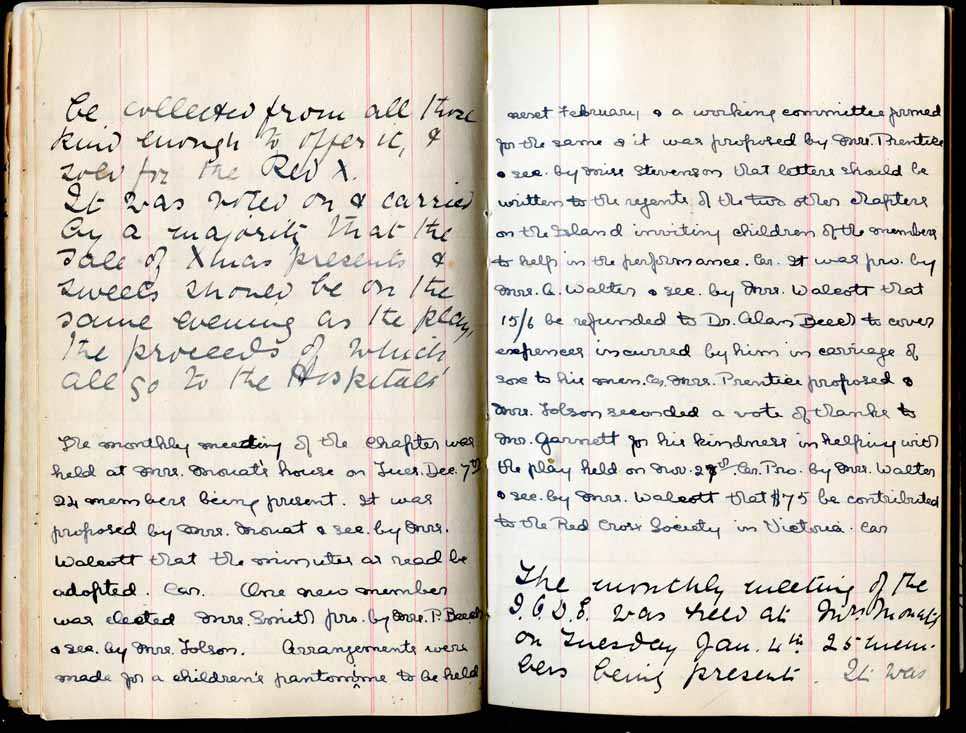 be collected from all those
kind enough to offer it, &
sold for the Red X.
It was voted on & carried
by a majority that the
sale of Xmas presents &
sweets should be on the
same evening as the play,
the proceeds of which
all go to the Hospitals'
The monthly meeting of the Chapter was
held at Mrs. Mouat's house on Tues. Dec. 7th
24 members being present. It was
proposed by Mrs. Mouat & sec. by Mrs.
Walcott that the minutes as read be
adopted. Car. One new member
was elected Mrs. Smith pro. by Mrs. P. Beech
& sec. by Mrs. Tolson. Arrangements were
made for a children's pantomime to be held
next February, & a working committee formed
for the same & it was proposed by Mrs. Prentice
& sec. by Miss Stevenson that letters should be
written to the regents of the two other chapters
on the Island inviting children of the members
to help in the performance. Car. It was pro. by
Mrs. G. Walter & sec. by Mrs. Walcott that
15/6 be refunded to Dr. Alan Beech to cover
expences incurred by him in carriage of
sox to his men. Car. Mrs. Prentice proposed &
Mrs. Tolson seconded a vote of thanks to
Mr. Garnett for his kindness in helping with
the play held on Nov. 27th. Car. Pro. by Mrs. Walter
& sec. by Mrs. Walcott that $75 be contributed
to the Red Cross Society in Victoria. Car
The monthly meeting of the
I.O.D.E. was held at Mrs. Mouat's
on Tuesday Jan. 4th 25 mem-
bers being present. It was